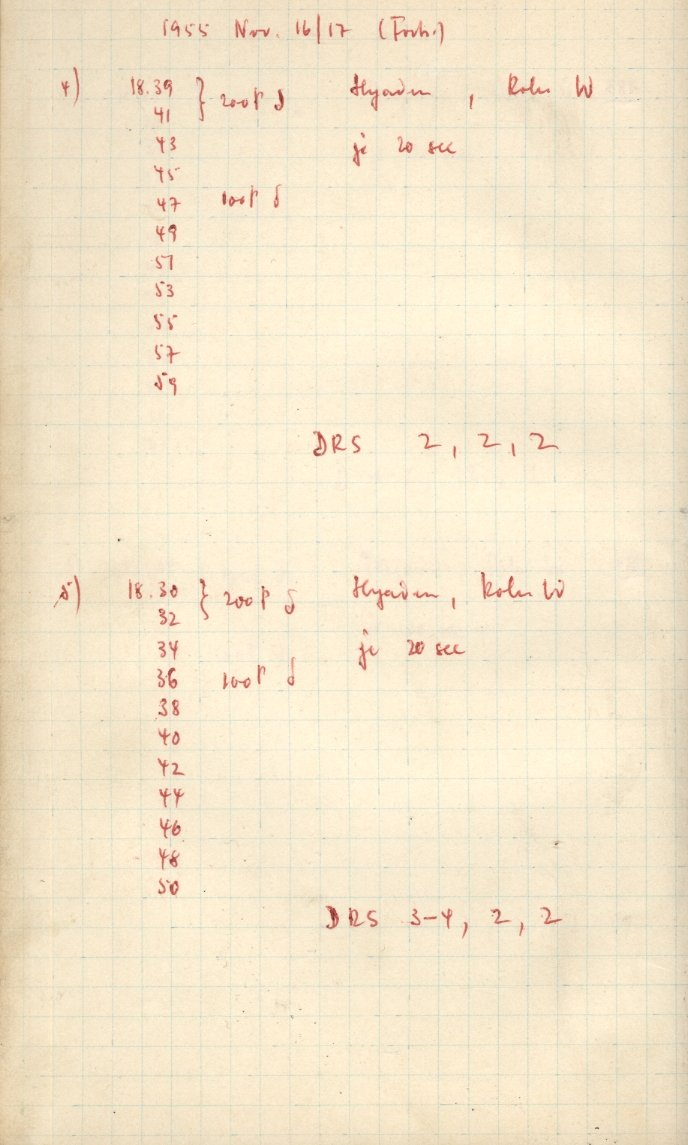 1955 Nov. 16/17 (Forts.)
4) 18.39 } 200 P δ Hyaden, Rohr W
41
43 je 20 sec
45
47 100 P δ
49
51
53
55
57
59
DRS 2, 2, 2
5) 18.30 } 200 P δ Hyaden, Rohr W
32
34 je 20 sec
36 100 P δ
38
40
42
44
46
48
50
DRS 3-4, 2, 2